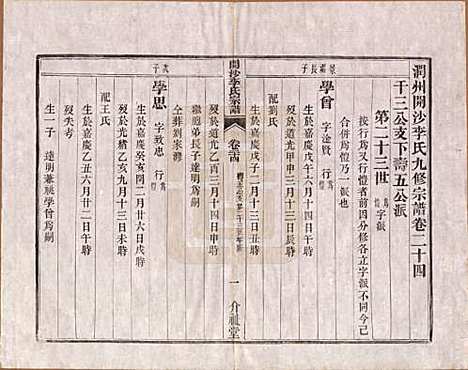 潤州開沙李氏九修宗譜卷二十四
千三公支下壽五公派
第二十三世 為字派
按行為又行體者前四分修各立字派不同今已
合併為體乃一派也
景灝長子
學曾 字淦賢 行
生於嘉慶戊午六月十四日
歿於道光甲申三月十三日丑時
配劉氏
生於嘉慶戊午
歿於道光乙酉三月十四日申時
繼胞弟長子達明為嗣
仝葬劉家灣
開沙李氏宗譜
卷二十四
一 介祉堂
次子
學思 字致忠 行
生於嘉慶癸亥閏二月廿六日戌時
歿於光緒乙亥九月十三日未時
配王氏
生於嘉慶乙丑六月廿二日午時
歿失考
生一子 達明兼祧學曾為嗣